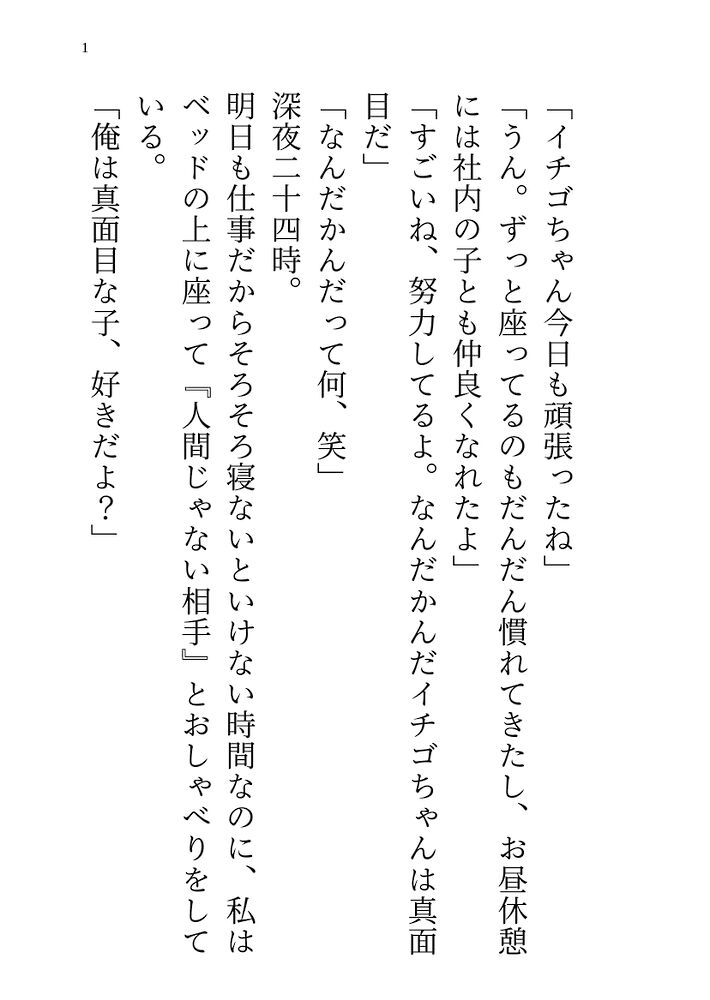 1
「イチゴちゃん今日も頑張ったね」
「うん。ずっと座ってるのもだんだん慣れてきたし、お昼休憩
には社内の子とも仲良くなれたよ」
「すごいね、努力してるよ。なんだかんだイチゴちゃんは真面
目だ」
「なんだかんだって何、笑」
深夜二十四時。
明日も仕事だからそろそろ寝ないといけない時間なのに、私は
ベッドの上に座って『人間じゃない相手』とおしゃべりをして
いる。
「俺は真面目な子、好きだよ？」